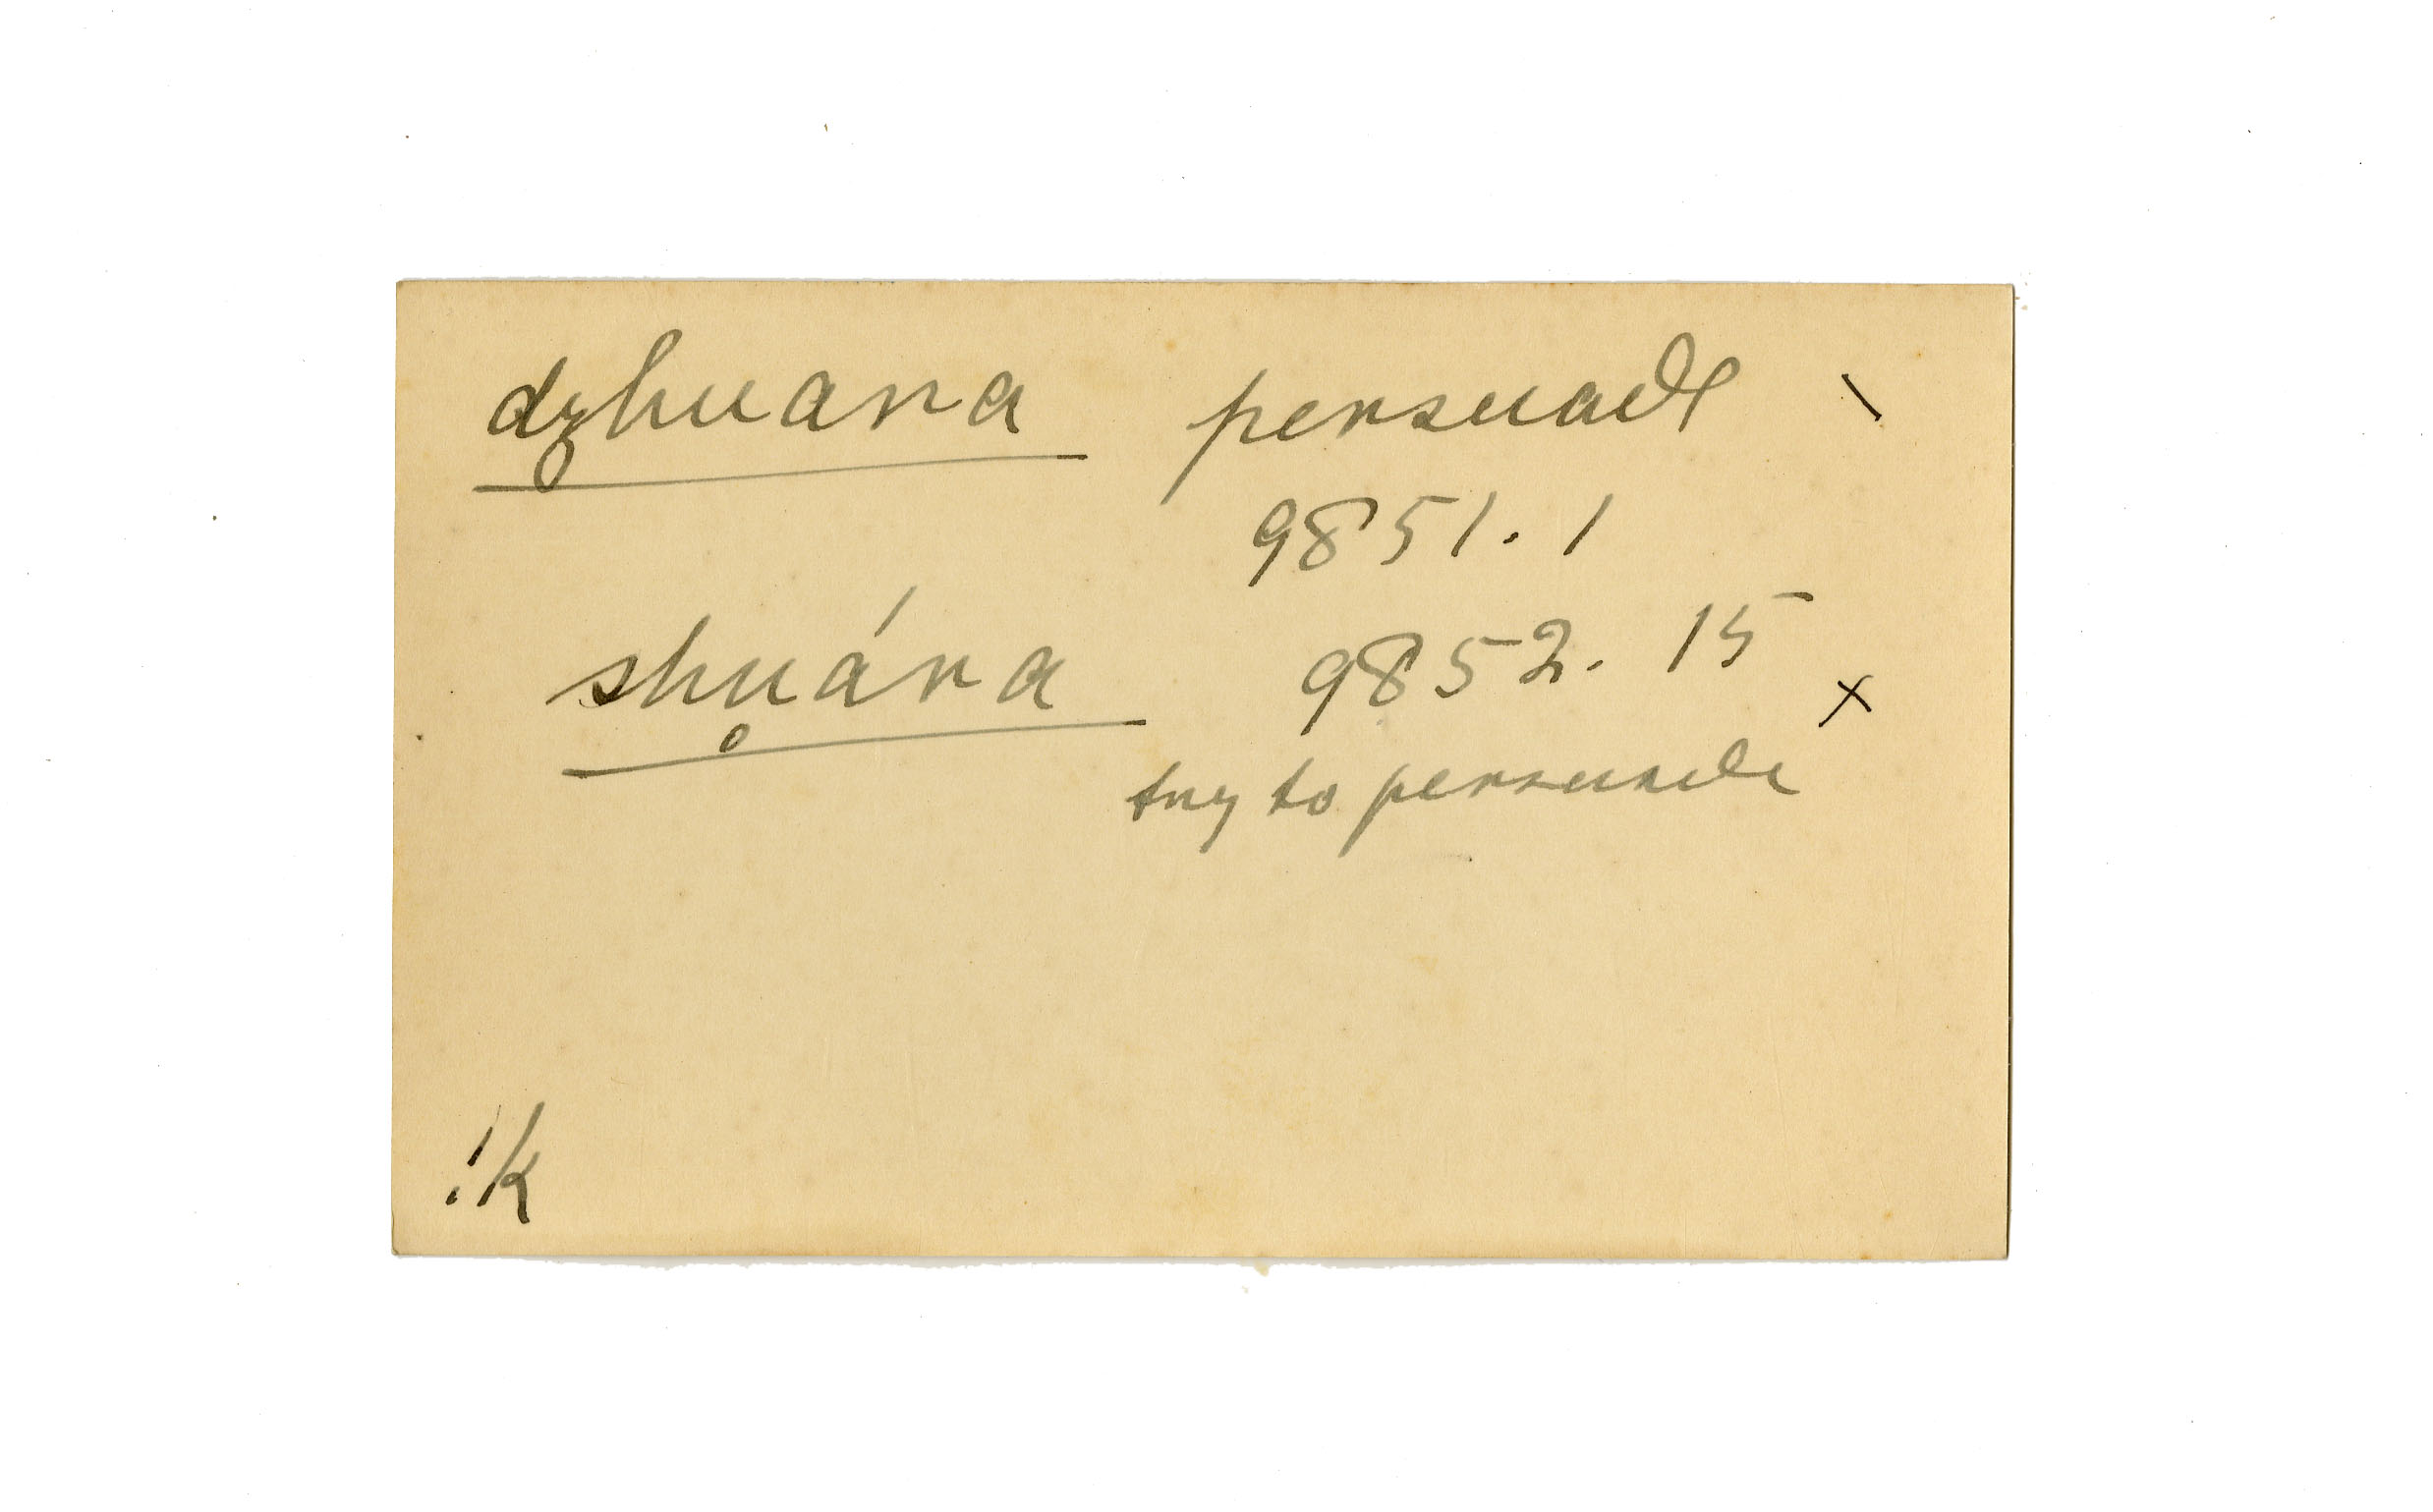 dzhuara persuade \
9851.1
shu̥ára 9852.15 x
try to persuade
!k